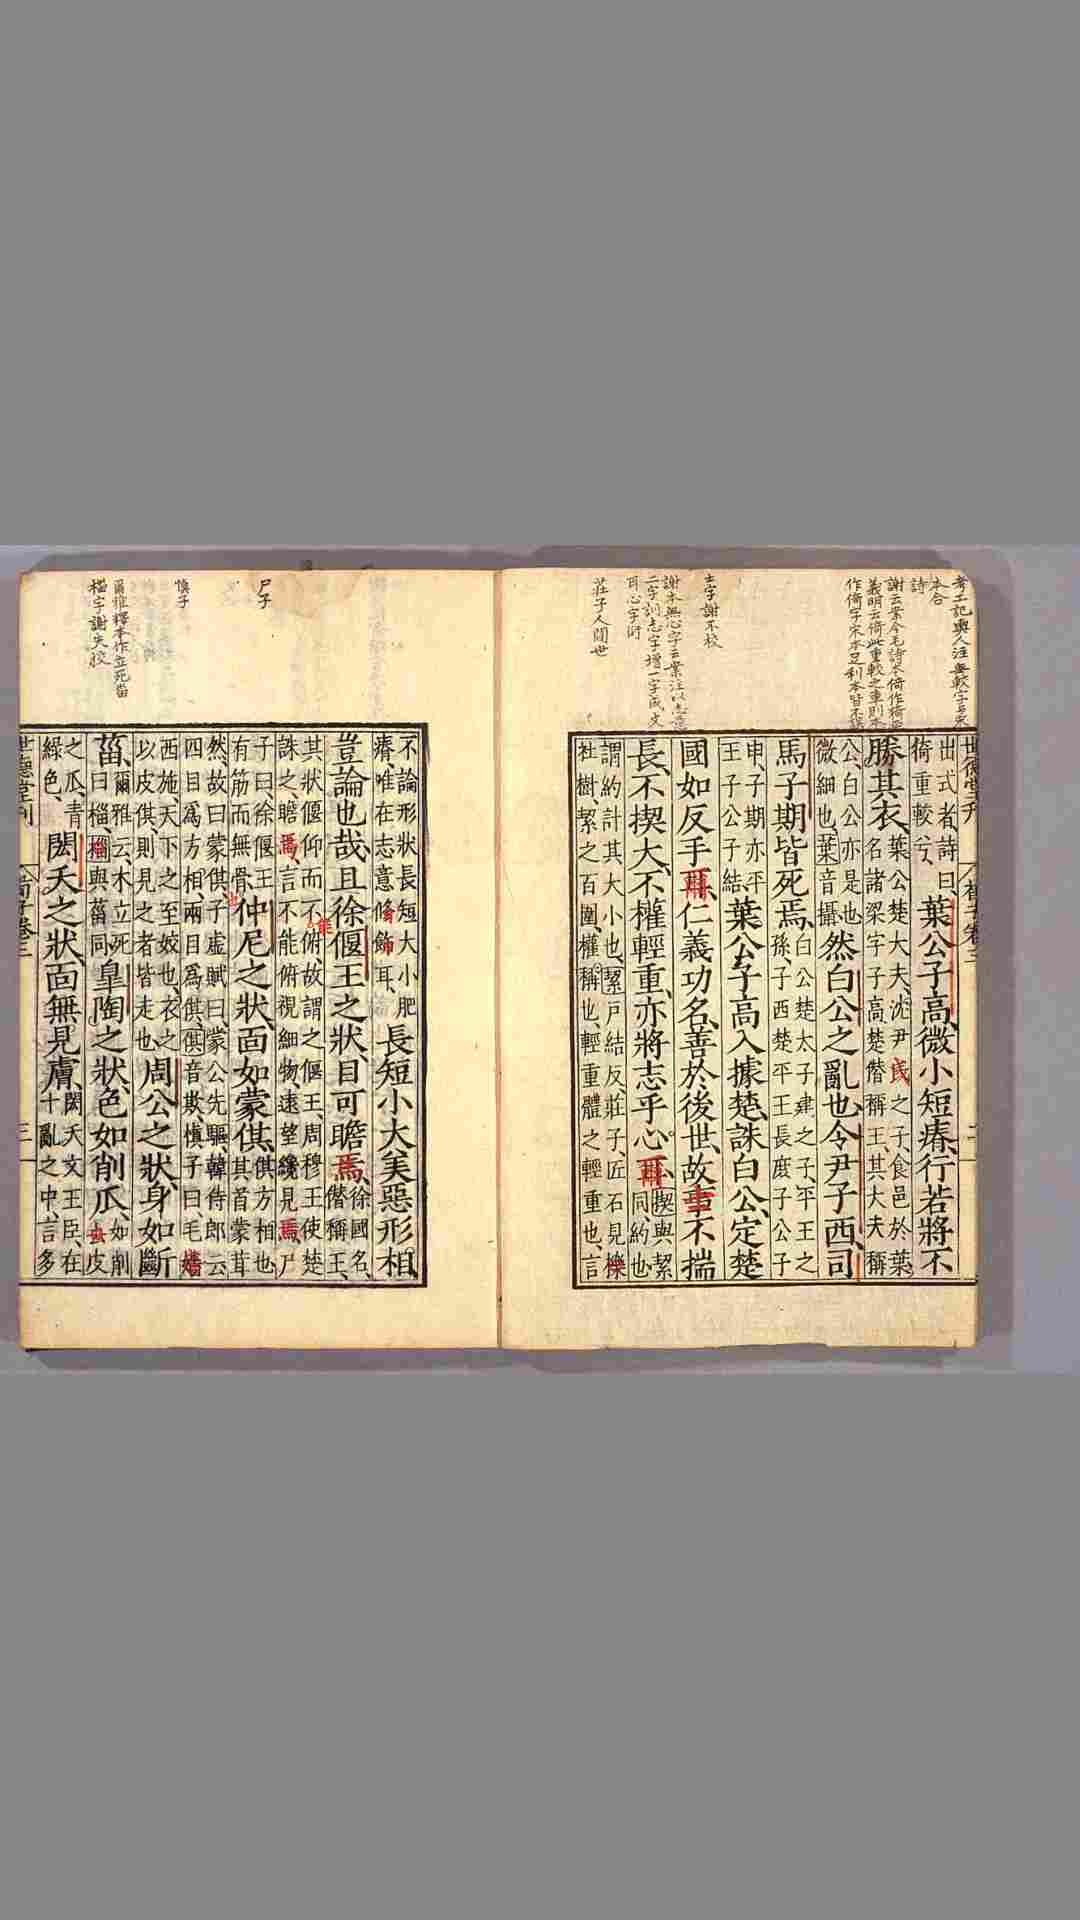 考工記輿人注無較字
本合
詩
謝云案今毛詩本倚作猗
義明云倚此重較之車則
作倚字宋本足利本皆
士字謝不校
謝本無心字云案注以志意
二字訓志字增一字成文
耳心字衍
莊子人間世
世德堂刊 荀子卷三 二
出式者、詩曰、
倚重較兮、
葉公子高、微小短瘠、行若將不
勝其衣、
葉公楚大夫、沈尹戌之子、食邑於葉、
名諸梁字子高、楚僭稱王、其大夫稱
公、白公亦是也、
微細也、葉音攝
然白公之亂也、令尹子西、司
馬子期、皆死焉、
白公楚太子建之子、平王之
孫、子西楚平王長庶子公子
申、子期亦平
王子公子結、
葉公子高入據楚、誅白公、定楚
國、如反手爾、仁義功名、善於後世、故事不揣
長、不揳大、不權輕重、亦將志乎心爾、
揳與絜
同、約也
謂約計其大小也、絜戸結反、莊子、匠石見櫟
社樹、絜之百圍、權稱也、輕重體之輕重也、言
尸子
慎子
爾雅釋本作立死菑
椔字謝失校
不論形狀長短大小肥
瘠、唯在志意修飾耳、
長短小大美惡形相、
豈論也哉、且徐偃王之狀、目可瞻焉、
徐國名、
僭稱王、
其狀偃仰而不能俯、故謂之偃王、周穆王使楚
誅之、瞻焉、言不能俯視細物、遠望纔見焉、尸
子曰、徐偃王
有筋而無骨也
仲尼之狀、面如蒙倛、
倛方相也
其首蒙茸
然、故曰蒙倛、子虛賦曰、蒙公先驅、韓侍郎云
四目爲方相、兩目爲倛、倛音欺、慎子曰、毛嬙
西施、天下之至姣也、衣之
以皮倛、則見之者皆走也、
周公之狀、身如斷
菑、
爾雅云、木立死
曰椔、椔與菑同、
皐陶之狀、色如削瓜、
如削
去皮
之瓜、青
綠色、
閎夭之狀、面無見膚、
閎夭文王臣、在
十亂之中、言多
世德堂刊 荀子卷三 三